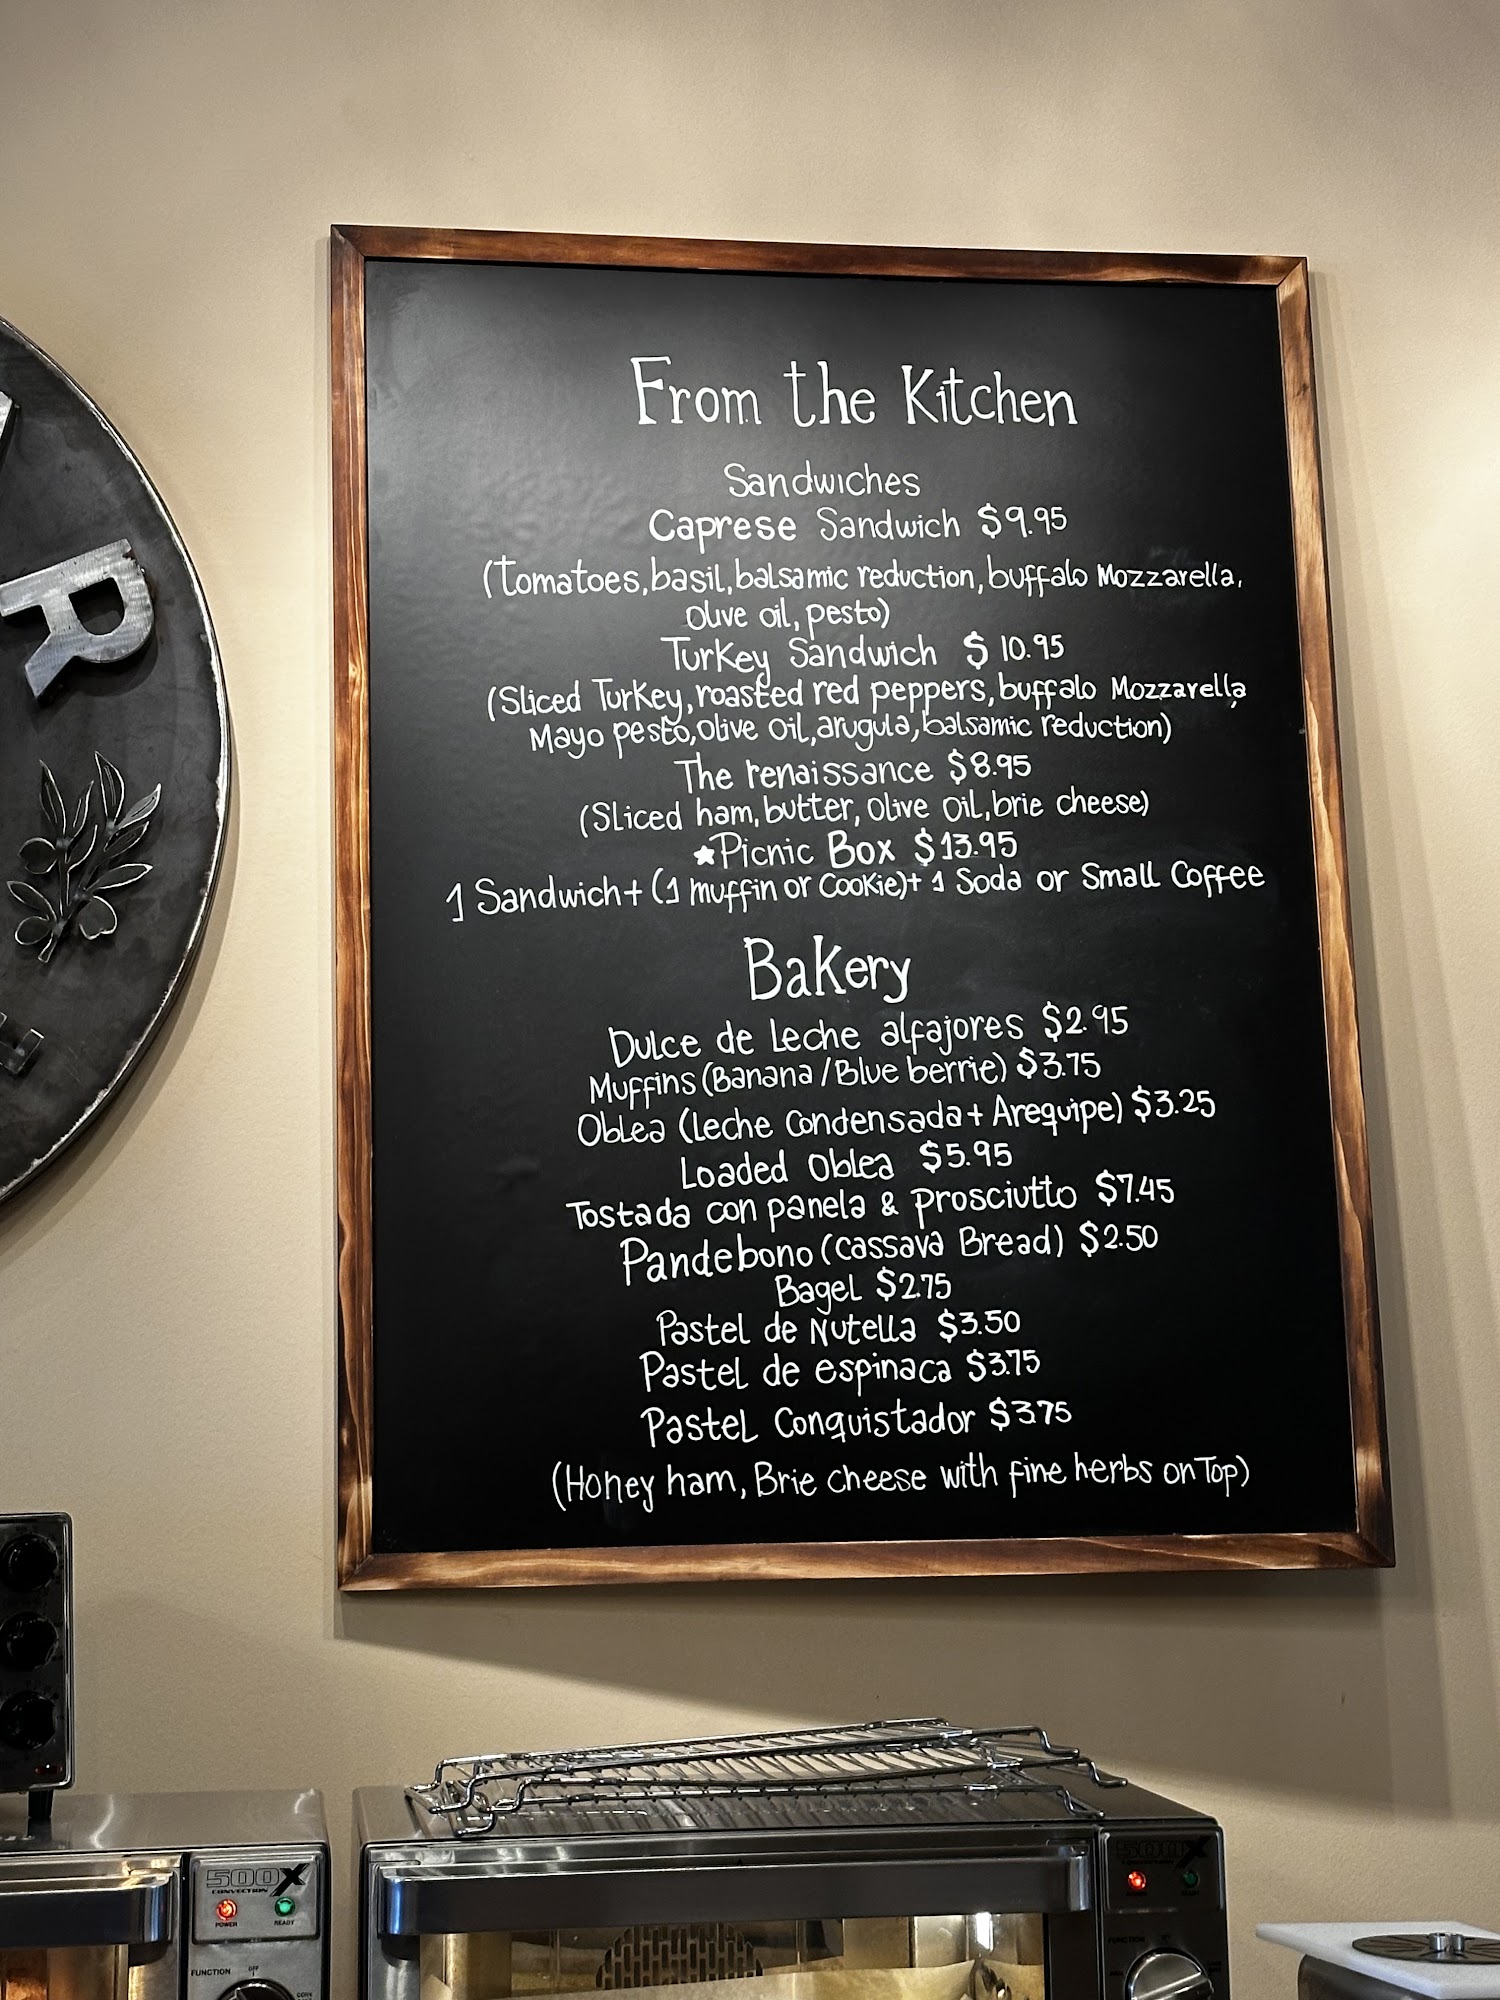 From the Kitchen
Sandwiches
Caprese Sandwich $9.95
(tomatoes, basil, balsamic reduction, buffalo Mozzarella,
Olive oil, pesto)
Turkey Sandwich $10.95
(Sliced Turkey, roasted red peppers, buffalo Mozzarella,
Mayo pesto, olive oil, arugula, balsamic reduction)
The renaissance $8.95
(Sliced ham, butter, olive oil, brie cheese)
★Picnic Box $13.95
1 Sandwich + (1 muffin or Cookie) + 1 Soda or Small Coffee
Bakery
Dulce de Leche alfajores $2.95
Muffins (Banana / Blue berrie) $3.75
Oblea (Leche Condensada + Arequipe) $3.25
Loaded Oblea $5.95
Tostada con panela & prosciutto $7.45
Pandebono (cassava Bread) $2.50
Bagel $2.75
Pastel de Nutella $3.50
Pastel de espinaca $3.75
Pastel Conquistador $3.75
(Honey ham, Brie cheese with fine herbs on Top)
R
500X
CONVECTION
POWER
READY
FUNCTION
OFF
500X
FUNCTION